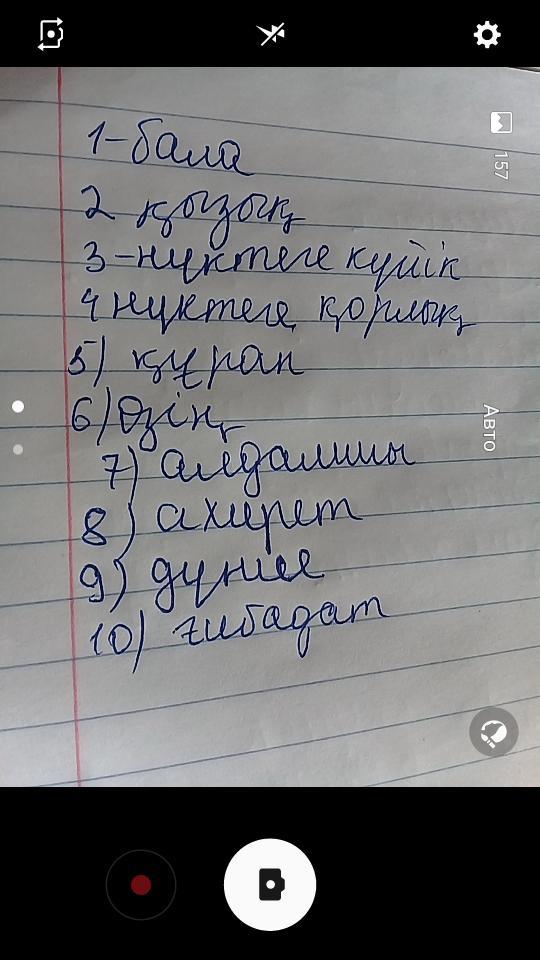 157
1-бала
2 қызық
3-нүктеге күйік
4 нүктеге қорлық
5) құран
6) Өзің
Авто
7) алдамшы
8) ахирет
9) дүние
10) ғибадат